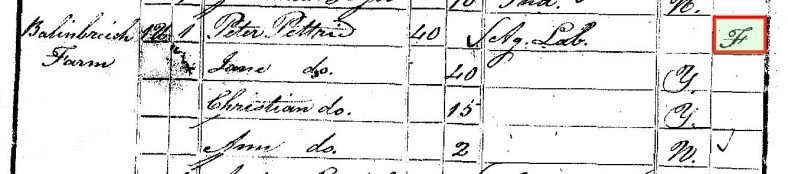 Balinbreich 1 Peter Pettrie 40 Ag. Lab. F
Farm Jane do. 40 Y.
Christian do. 15 Y.
Ann do. 2 N.